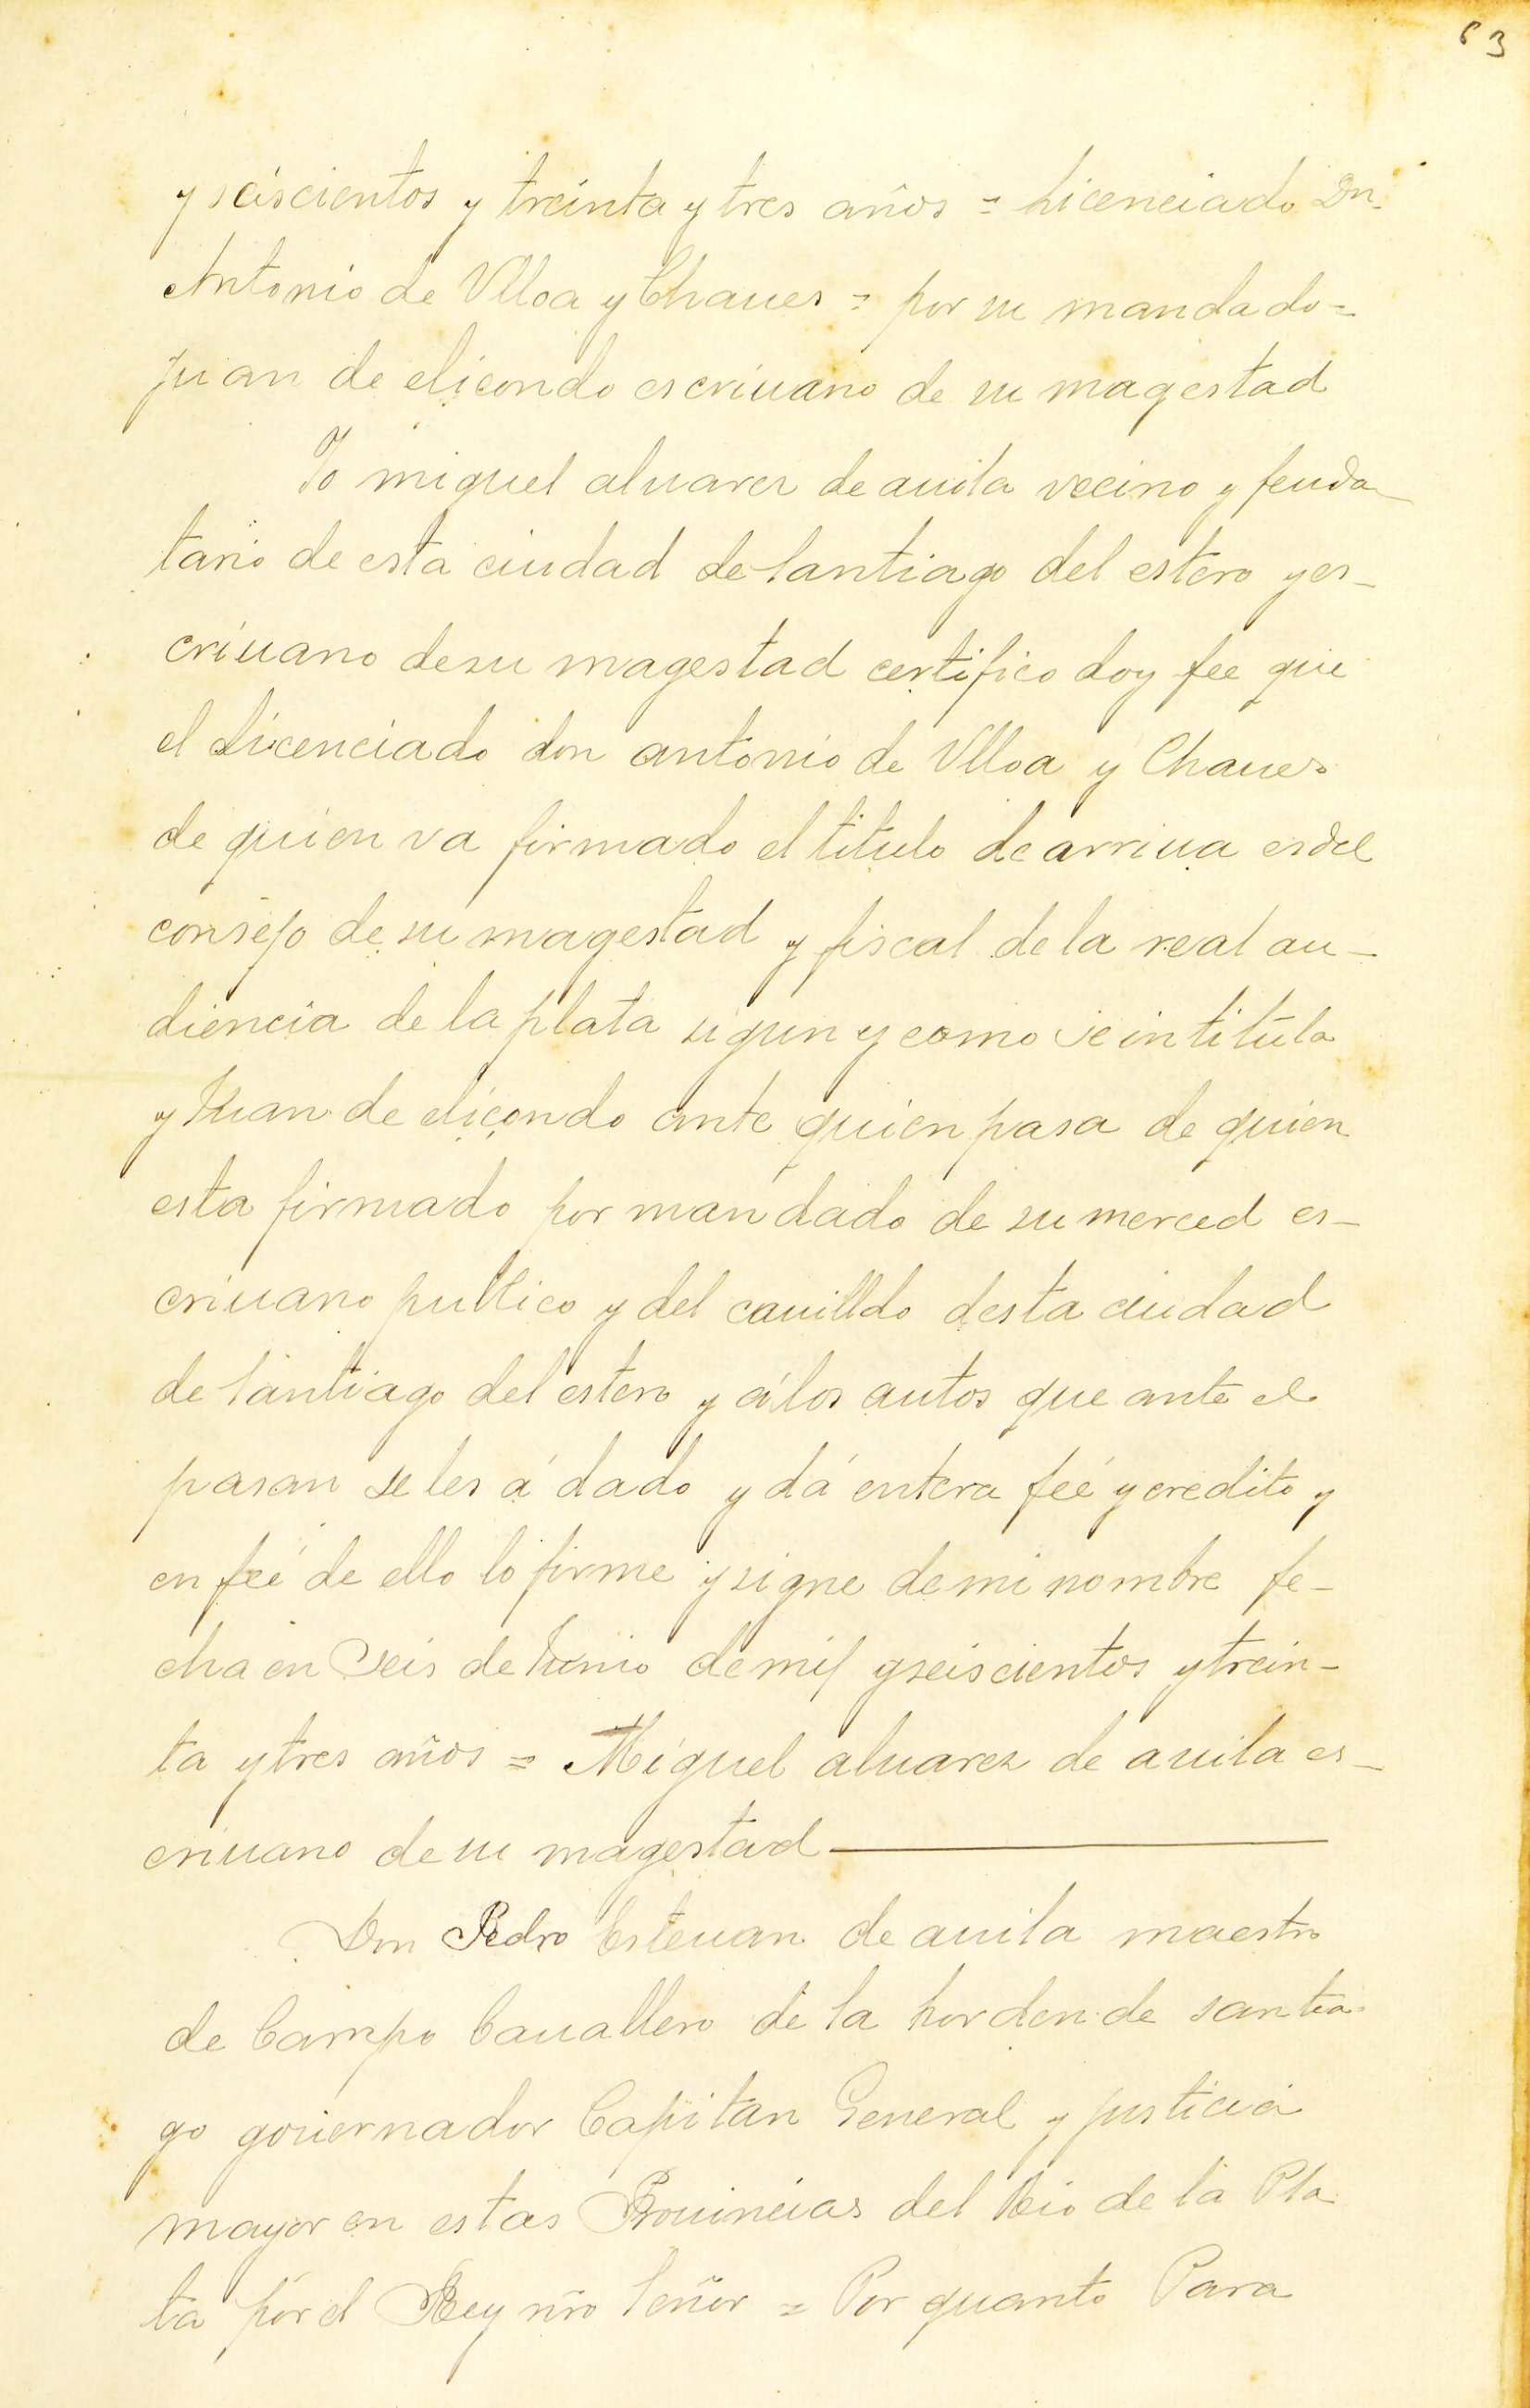 63
y seiscientos y treinta y tres años = Licenciado Dn.
Antonio de Vlloa y Chaues = por su mandado =
Juan de eliçondo escriuano de su magestad
Yo miguel aluarez de auila vecino y feuda
tario de esta ciudad de Santiago del estero y es-
criuano de su magestad certifico doy fee que
el Licenciado don antonio de Vlloa y Chaues
de quien va firmado el titulo de arriua es del
consejo de su magestad y fiscal de la real au-
diencia de la plata segun y como se intitula
y Juan de eliçondo ante quien pasa de quien
esta firmado por mandado de su merced es-
criuano publico y del cauilldo desta ciudad
de Santiago del estero y á los autos que ante el
pasan se les á dado y dá entera feé y credito y
en feé de ello lo firme y signe de mi nombre fe-
cha en Seis de Junio de mil y seiscientos y trein-
ta y tres años = Miguel aluarez de auila es-
criuano de su magestad
Don Pedro Esteuan de auila maestro
de Campo Cauallero de la horden de santia-
go gouernador Capitan General y justicia
mayor en estas Prouincias del Rio de la Pla
ta por el Rey nro Señor = Por quanto Para